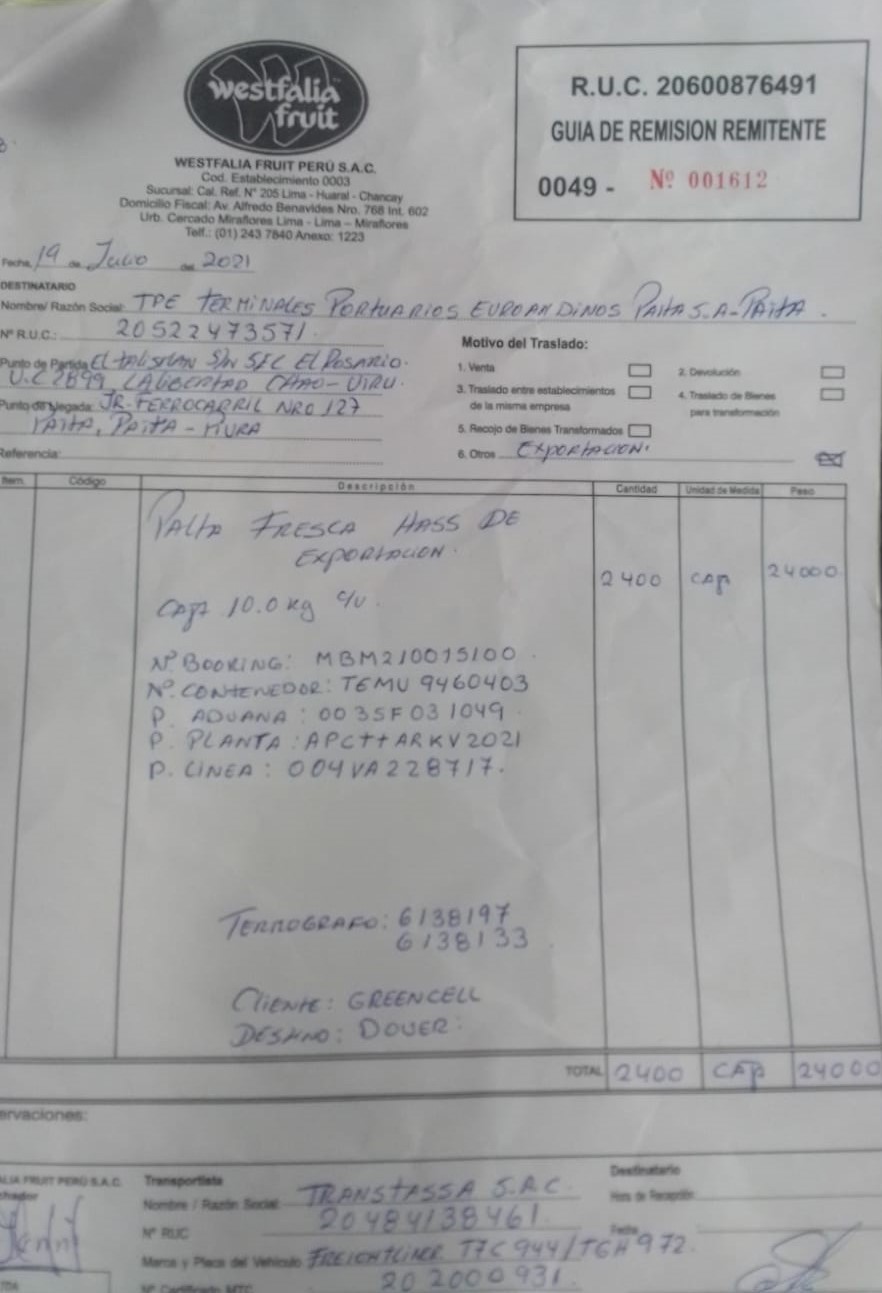 westfalia
fruit
WESTFALIA FRUIT PERÚ S.A.C.
Cod. Establecimiento 0003
Sucursal: Cal. Ref. N° 205 Lima - Huaral - Chancay
Domicilio Fiscal: Av. Alfredo Benavides Nro. 768 Int. 602
Urb. Cercado Miraflores Lima - Lima - Miraflores
Telf.: (01) 243 7840 Anexo: 1223
R.U.C. 20600876491
GUIA DE REMISION REMITENTE
0049 - Nº 001612
Fecha, 19 de Julio del 2021
DESTINATARIO
Nombre/ Razón Social: TPE TERMINALES PORTUARIOS EUROANDINOS PAITA S.A-PAITA.
Nº R.U.C.: 20522473571.
Punto de Partida: EL TALISMAN S/N SEC EL ROSARIO.
U.C 2899 LA LIBERTAD CHAO-VIRU.
Punto de llegada: JR. FERROCARRIL NRO 127
PAITA, PAITA - PIURA
Referencia:
Motivo del Traslado:
1. Venta
2. Devolución
3. Traslado entre establecimientos
de la misma empresa
4. Traslado de Bienes
para transformación
5. Recojo de Bienes Transformados
6. Otros EXPORTACION.
Item. Código Descripción Cantidad Unidad de Medida Peso
PALTA FRESCA HASS DE
EXPORTACION.
2400 CAJA 24000
CAJA 10.0 kg c/u.
Nº BOOKING: MBM210015100
Nº. CONTENEDOR: TEMU 9460403
P. ADUANA: 0035F031049
P. PLANTA: APCTTARKV2021
P. LINEA: 004VA228717.
TERMOGRAFO: 6138197
6138133
CLIENTE: GREENCELL
DESTINO: DOVER.
TOTAL 2400 CAJA 24000
ervaciones:
ALIA FRUIT PERÚ S.A.C.
Transportista
Nombre / Razón Social: TRANSTASSA S.A.C.
Nº RUC 20484138461
Marca y Placa del Vehículo FREIGHTLINER T7C944/TGH972.
Nº Certificado MTC 202000931.
Destinatario
Hora de Recepción:
Fecha